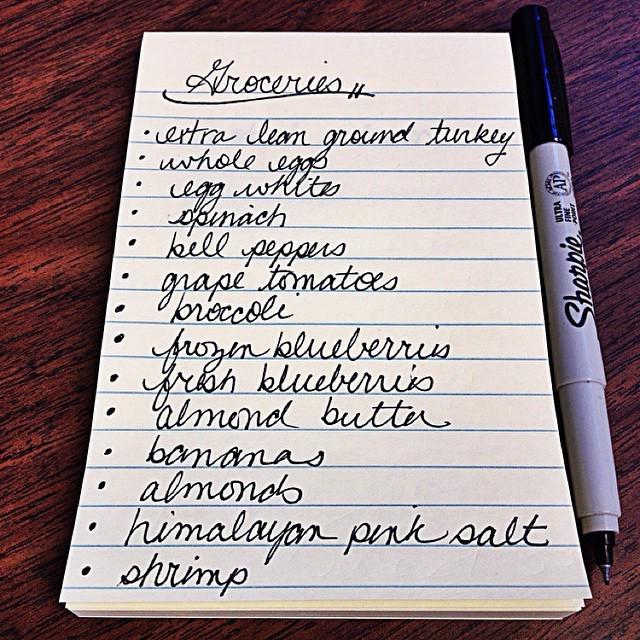 Groceries
• extra lean ground turkey
• whole eggs
• egg whites
• spinach
• bell peppers
• grape tomatoes
• broccoli
• frozen blueberries
• fresh blueberries
• almond butter
• bananas
• almonds
• himalayan pink salt
• shrimp
Sharpie
ULTRA FINE POINT
AP